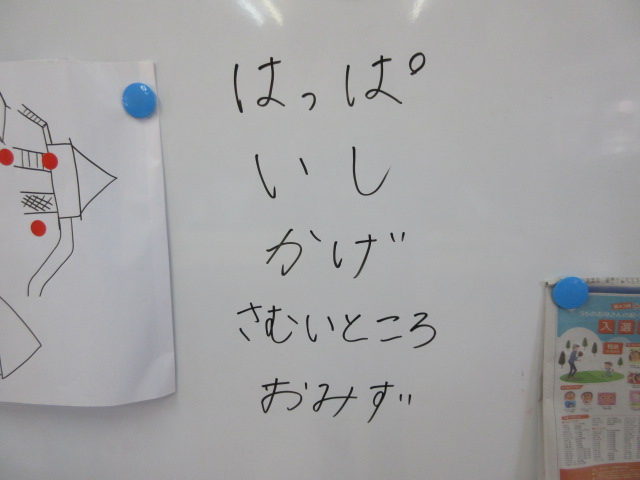 はっぱ
いし
かげ
さむいところ
おみず
入選